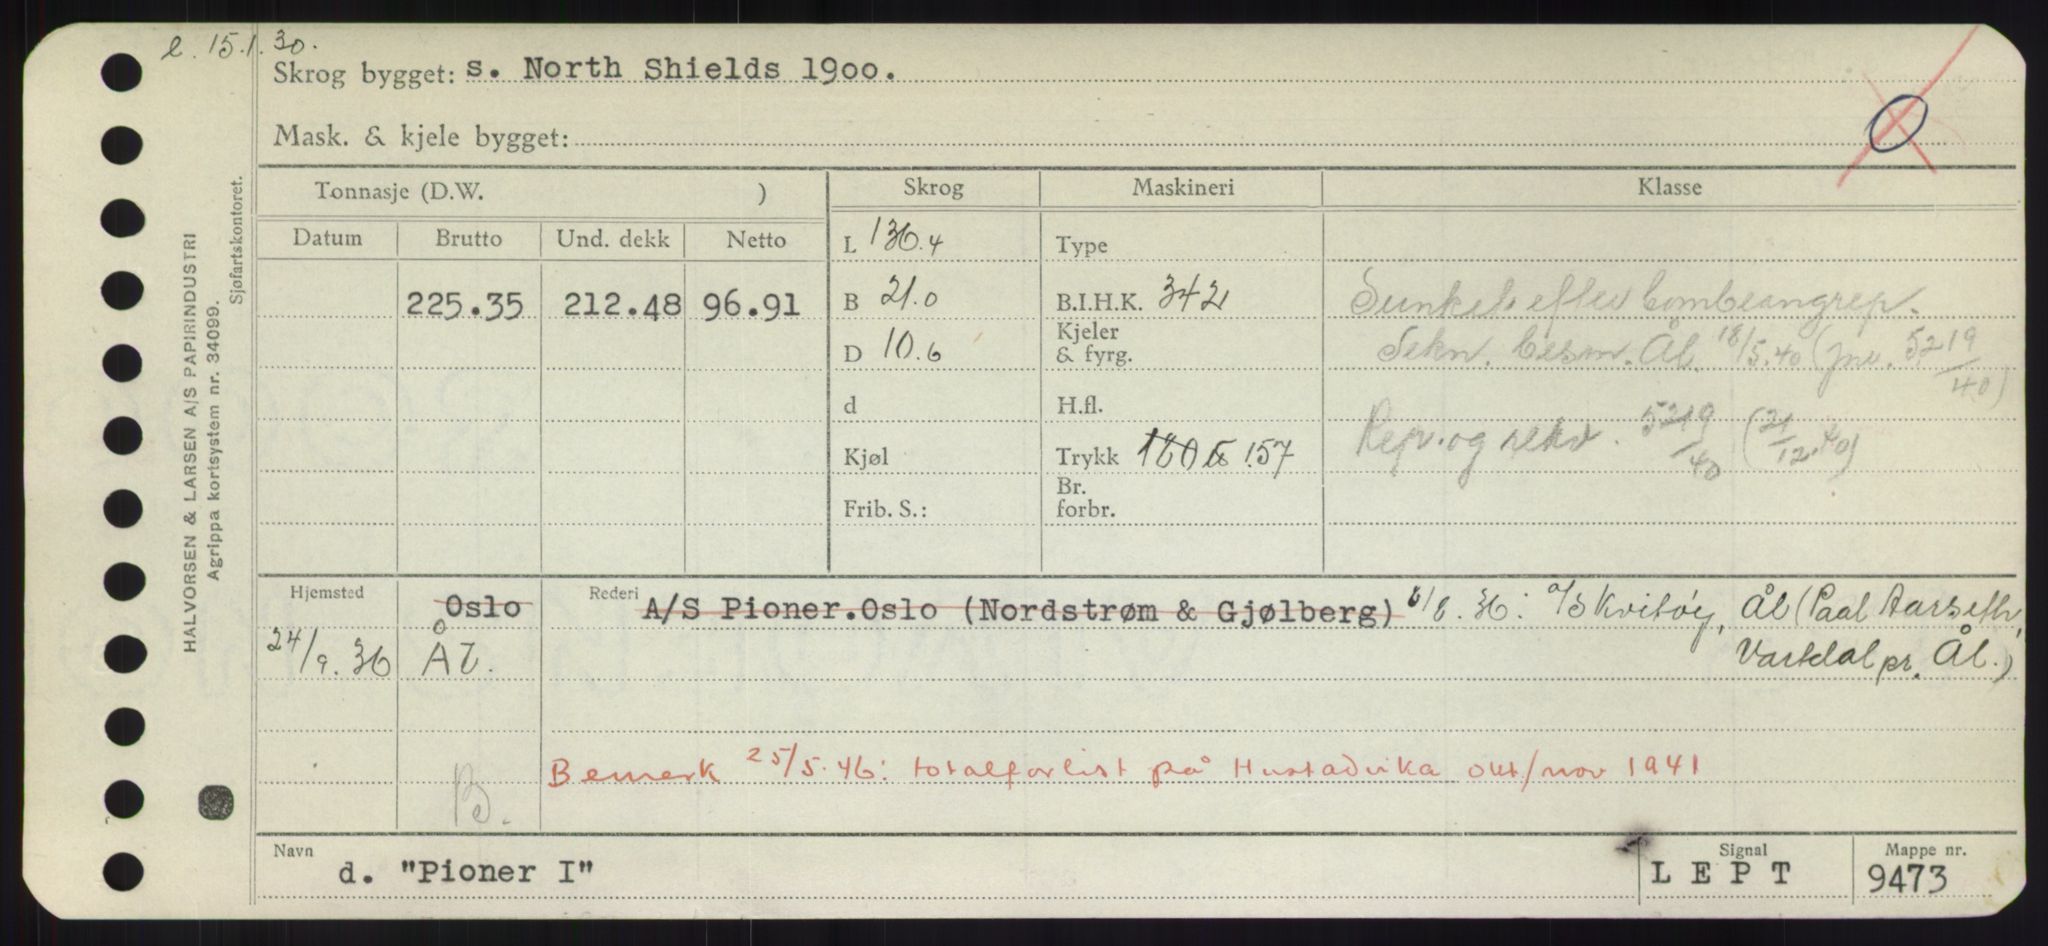 e. 15.1.30.
Skrog bygget: s. North Shields 1900.
0
Mask. & kjele bygget:
Tonnasje (D.W. )
Skrog
Maskineri
Klasse
Datum
Brutto
Und. dekk
Netto
225.35
212.48
96.91
L 136.4
B 21.0
D 10.6
d
Kjøl
Frib. S.:
Type
B.I.H.K. 342
Kjeler
& fyrg.
H.fl.
Trykk 180 157
Br.
forbr.
Sunket efter bombeangrep.
Tekn. besm. Ål. 18/5.40 (jnr. 5219/40)
Rep. og rekv. 5219/40 (21/12.40)
Hjemsted
Oslo
24/9.36 ÅL.
B.
Rederi A/S Pioner.Oslo (Nordstrøm & Gjølberg) /8.36: A/S Kvitøy, Ål (Paal Aarseth,
Vartdal pr. Ål.)
Bemerk 25/5.46: totalforlist på Hustadvika okt/nov 1941
Navn
d. "Pioner I"
Signal
L E P T
Mappe nr.
9473
HALVORSEN & LARSEN A/S PAPIRINDUSTRI
Agrippa kortsystem nr. 34099.
Sjøfartskontoret.